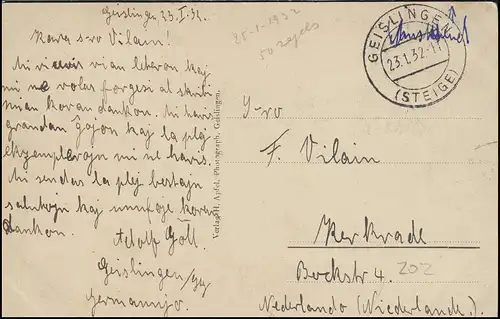 Geislingen, 23.I.32.
Kara s-ro Vilain!
Mi ricevis vian leteron kaj
mi ne volas forgesi al skribi
mian koran dankon. Mi havis
grandan ĝojon kaj la plej
ekzemplerojn mi ne havis.
Mi sendas la plej bestajn
salutojn kaj
dankon.
Adolf Göll
Geislingen/Stg
Germanujo.
Verlag H. Apfel, Photograph, Geislingen.
25-1-1932
50 zegels
GEISLINGEN
23.1.32.
(STEIGE)
S-ro
F. Vilain
Kerkrade
Bockstr 4. 202
Nederlando (Niederlande.).